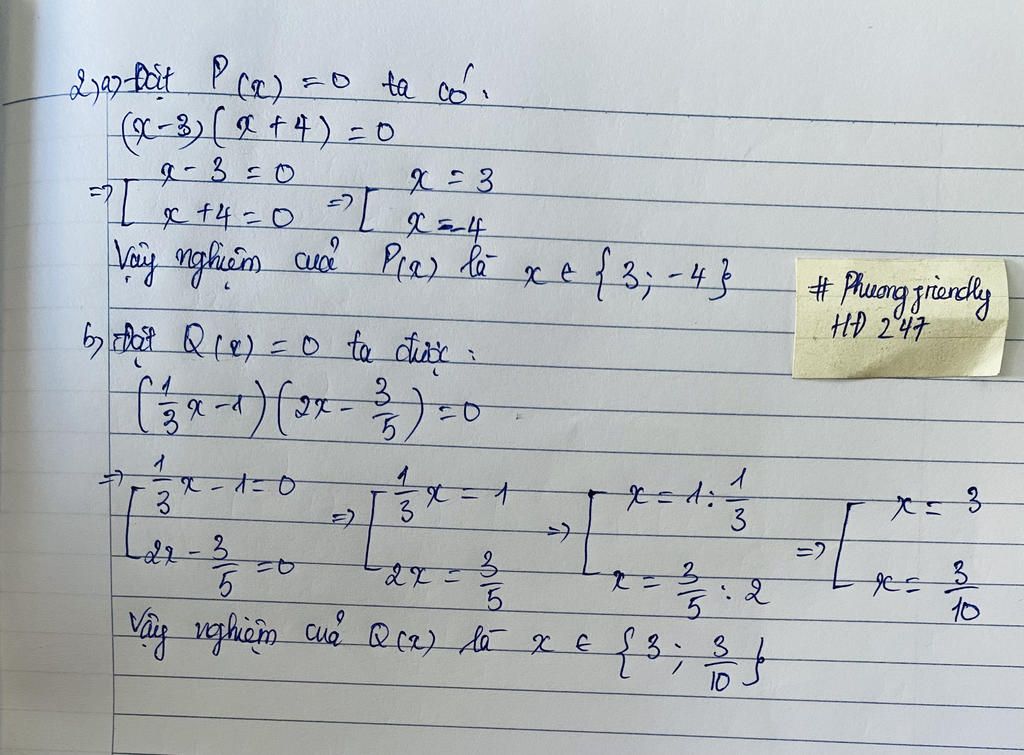 2, a, Đặt P(x) = 0 ta có:
(x-3)(x+4) = 0
=> [ x - 3 = 0 => [ x = 3
x + 4 = 0 x = -4
Vậy nghiệm của P(x) là x ∈ {3; -4}
# Phuongfriendly
HĐ 247
b, Đặt Q(x) = 0 ta được:
(1/3 x - 1)(2x - 3/5) = 0
=> [ 1/3 x - 1 = 0 => [ 1/3 x = 1 => [ x = 1 : 1/3 => [ x = 3
2x - 3/5 = 0 2x = 3/5 x = 3/5 : 2 x = 3/10
Vậy nghiệm của Q(x) là x ∈ {3; 3/10}